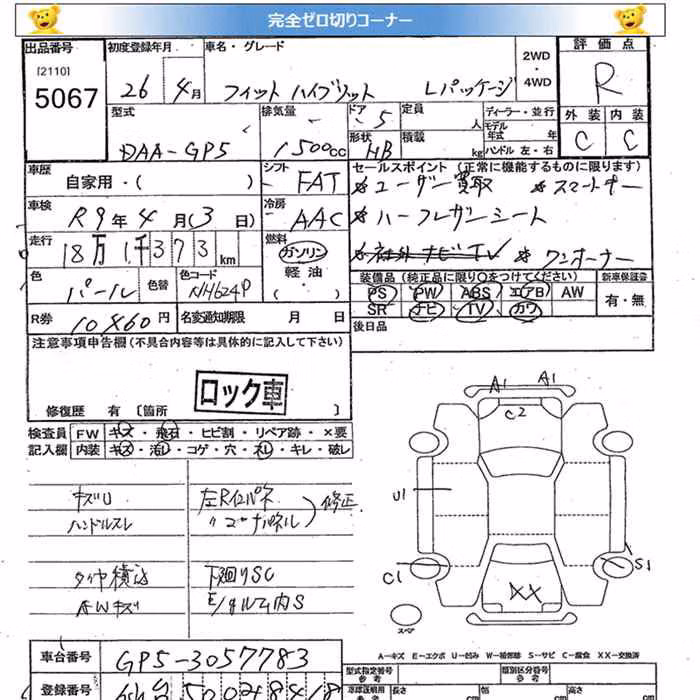 完全ゼロ切りコーナー
出品番号 初度登録年月 車名・グレード 2WD・4WD 評価点
[2110]
5067 26 4月 フィットハイブリット Lパッケージ R
型式 排気量 ドア 5 定員 人 ディーラー・並行 外装 内装
モデル年式 年
DAA-GP5 1500cc 形状 HB 積載 kg ハンドル 左・右 C C
車歴 シフト セールスポイント (正常に機能するものに限ります)
自家用・( ) FAT ☆ユーザー買取 ☆スマートキー
車検 冷房
R9年4月(3日) AAC ☆ハーフレザーシート
走行 燃料
18万1千373km ガソリン ☆社外ナビTV ☆ワンオーナー
色 色替 色コード 軽油 装備品 (純正品に限り○をつけてください) 新車保証書
パール NH624P ( ) PS PW ABS エアB AW 有・無
R券 10460円 名変通知期限 月 日 SR ナビ TV カワ
後日品
注意事項申告欄 (不具合内容等は具体的に記入して下さい)
ロック車
修復歴 有 [箇所 ]
検査員 FW キズ・飛石・ヒビ割・リペア跡・×要
記入欄 内装 キズ・汚れ・コゲ・穴・スレ・キレ・破レ
A1 A1
C2
キズU 左Rインパネ
ハンドルスレ 〃コーナパネル 修正
U1
タイヤ積込 下廻りSC
AWキズ E/gルーム内S
C1 S1
XX
スペア
A-キズ E-エクボ U-凹み W-補修跡 S-サビ C-腐食 XX-交換済
車台番号 GP5-3057783 型式指定番号 参考 類別区分番号 参考
登録番号 仙台 500 は 8418 車庫証明用 参考 長さ cm 幅 cm 高さ cm